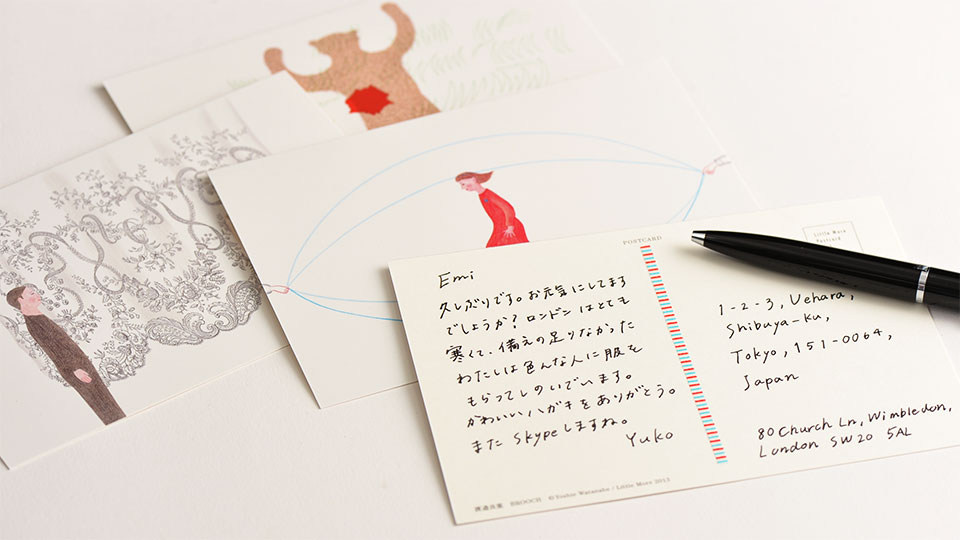 POSTCARD
Little More
Postcard
Emi
久しぶりです。お元気にしてます
でしょうか？ロンドンはとても
寒くて、備えの足りなかった
わたしは色んな人に服を
もらってしのいでいます。
かわいいハガキをありがとう。
また Skypeしますね。
Yuko
1-2-3, Uehara,
Shibuya-ku,
Tokyo, 151-0064,
Japan
80 Church Ln, Wimbledon,
London SW20 5AL
渡邉良重 BROOCH ©Yoshie Watanabe / Little More 2013